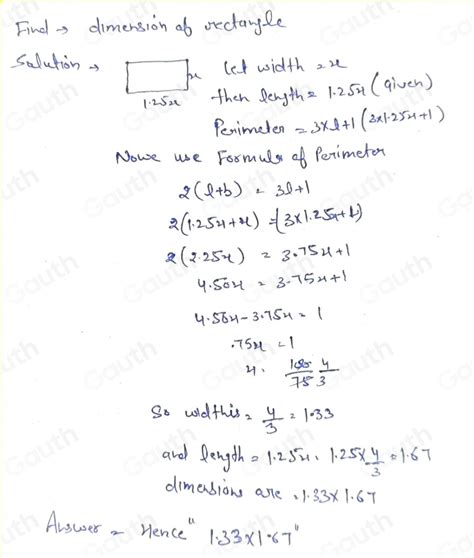 Find → dimension of rectangle
Solution →
x
1.25x
let width = x
then length = 1.25x (given)
Perimeter = 3×l+1 (3×1.25x+1)
Nowe use Formula of Perimeter
2(l+b) = 3l+1
2(1.25x+x) = (3×1.25x+1)
2(2.25x) = 3.75x+1
4.50x = 3.75x+1
4.50x-3.75x = 1
.75x = 1
x = 100/75 4/3
So width is = 4/3 = 1.33
and length = 1.25x = 1.25×4/3 = 1.67
dimensions are = 1.33×1.67
Answer = Hence "1.33×1.67"
Gauth